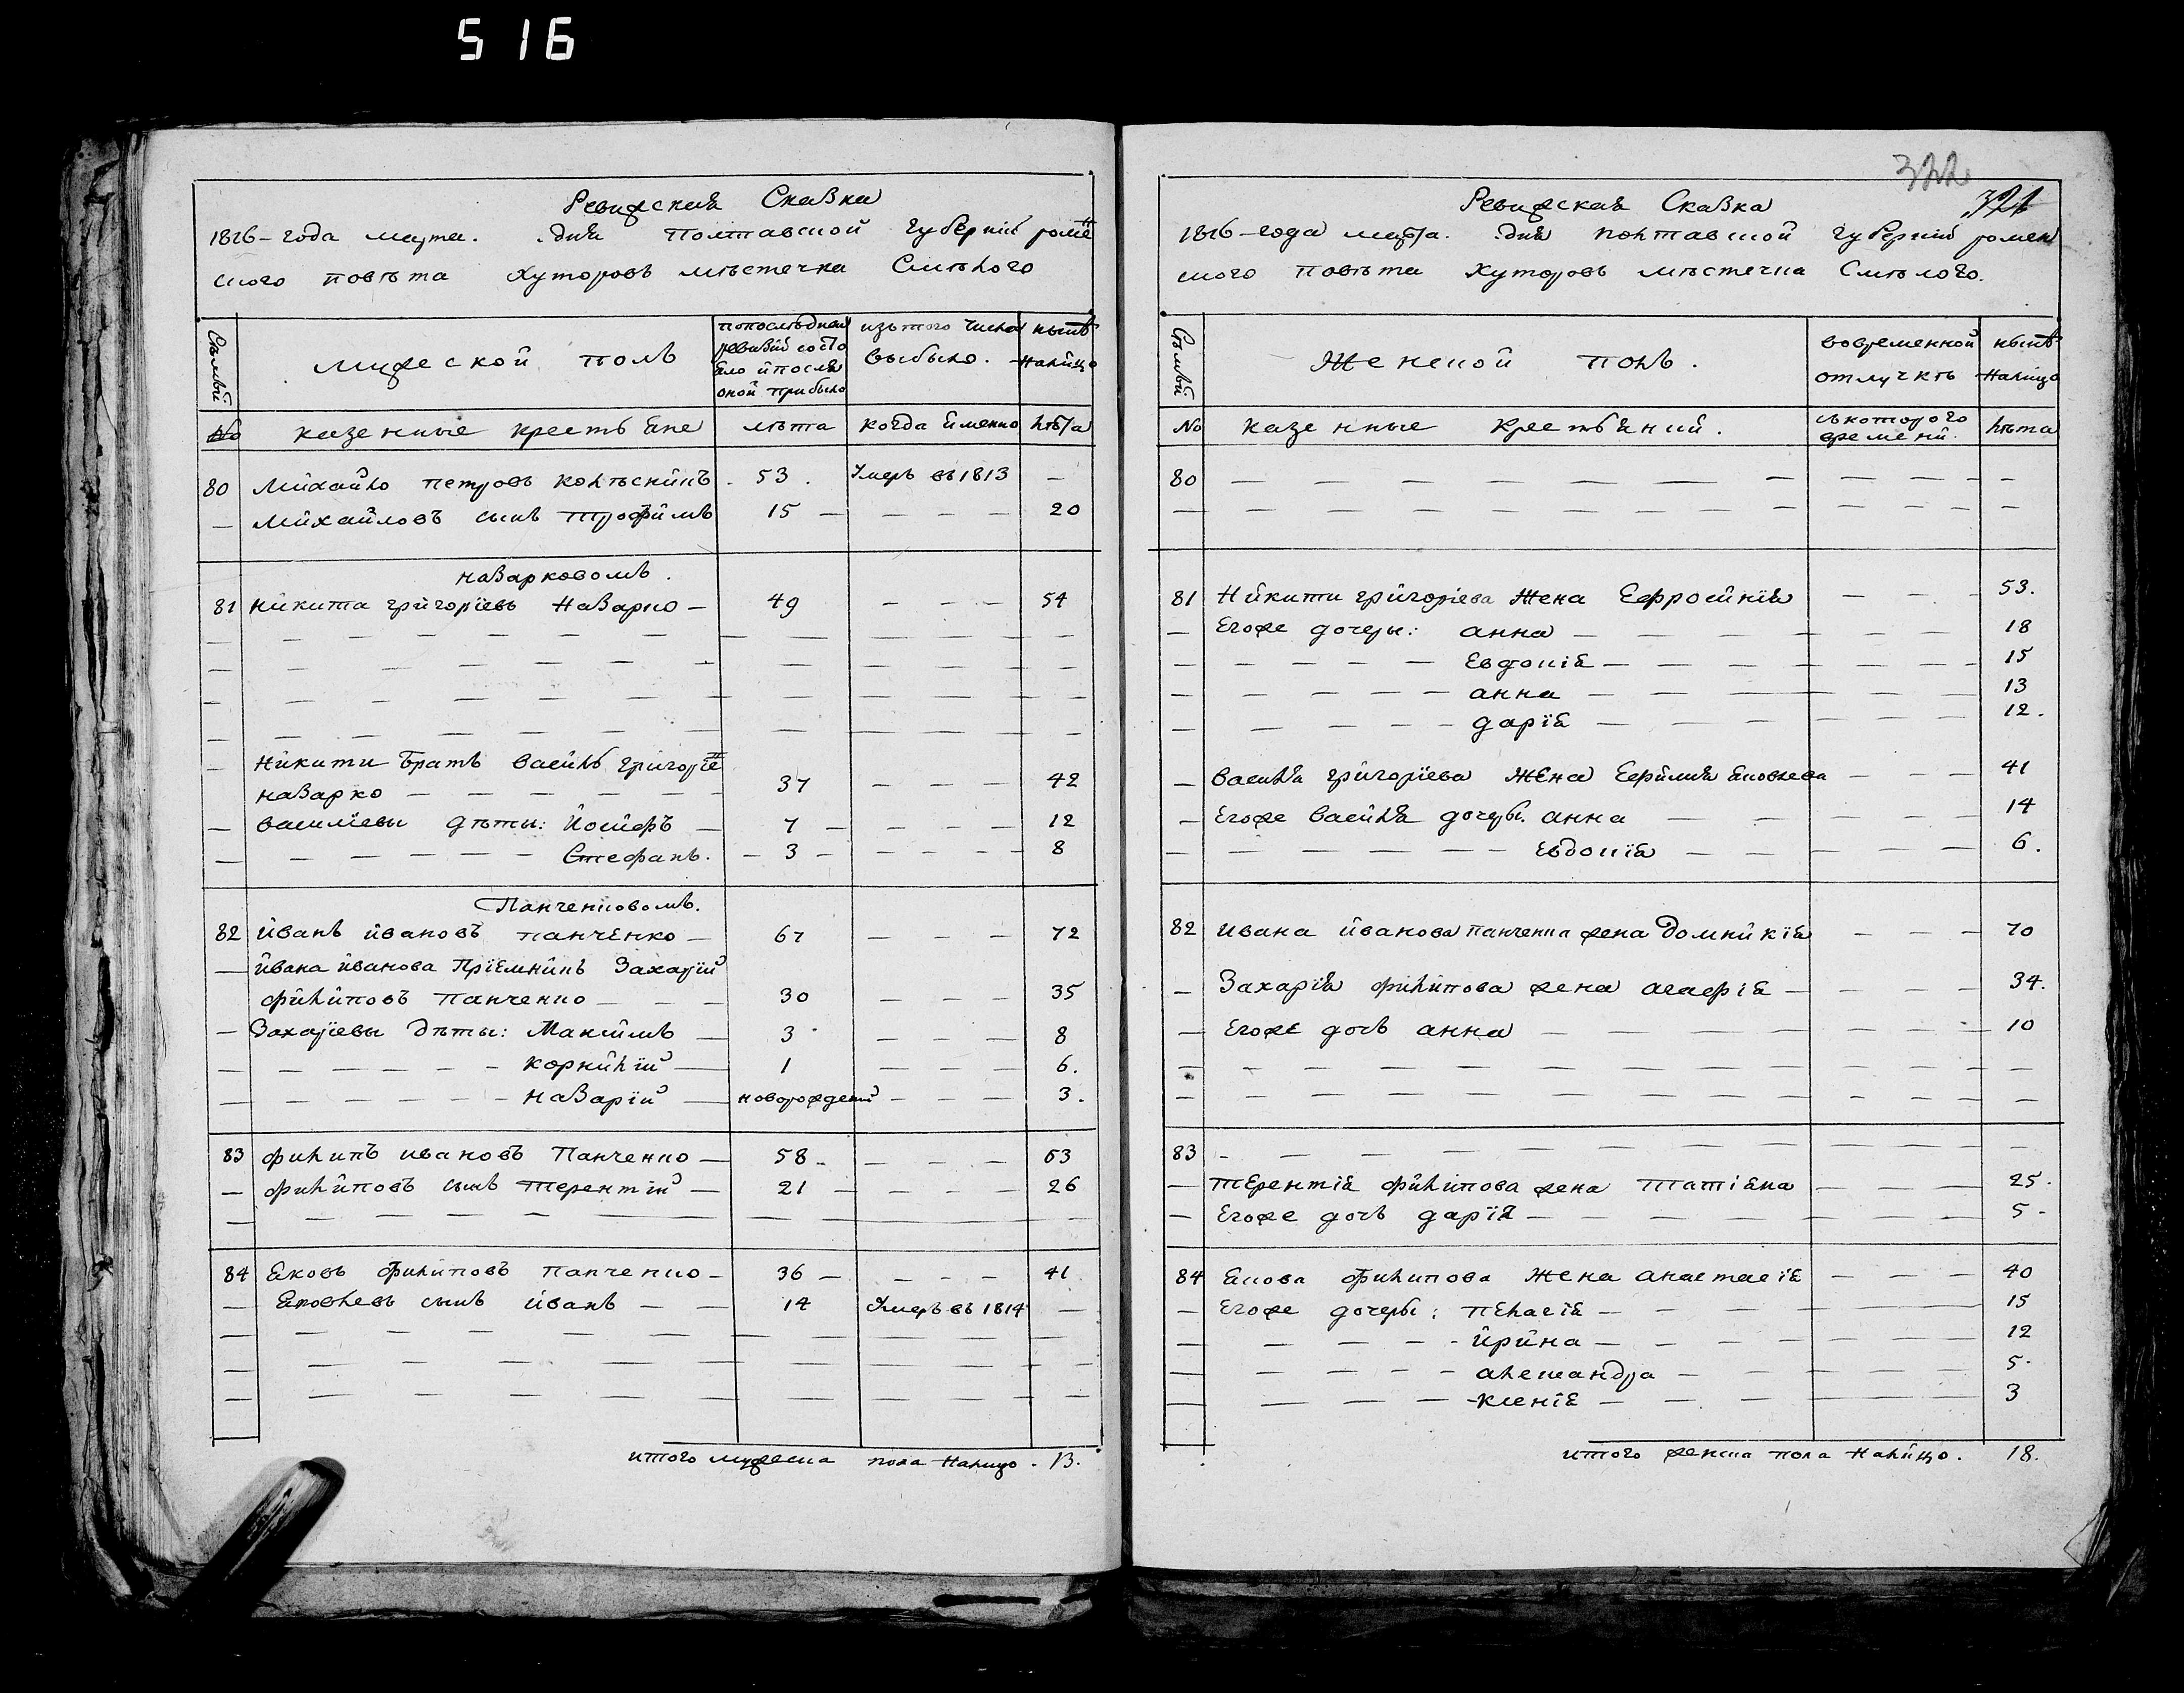 516
Ревизская Сказка
1816-года марта. дня Полтавской губернiи роме
ского повѣта Хуторовъ мѣстечка Смѣлого
Семьи
мужеской полъ
попослѣдней ревизiи состояло и после оной прибыло
изътого числа выбыло.
нынѣ налицо
№ казенные крестьяне лѣта когда именно лѣта
80 Михайло петровъ колѣсникъ 53 Умеръ въ 1813 —
— Михайловъ сынъ трофимъ 15 — — — — 20
назарковомъ.
81 никита григорiевъ назарко — 49 — — — 54
— никити братъ василь григорiе
назарко — 37 — — — 42
— василiевы дѣты: иосифъ — 7 — — — — 12
— Стефанъ. — 3 — — — — 8
Панченковомъ.
82 иванъ ивановъ панченко — 67 — — — 72
— ивана иванова прiемникъ Захарiй
филиповъ панченко — 30 — — — 35
— Захарiевы дѣты: Максимъ — 3 — — — 8
— корнилiй — 1 — — — 6.
— назарiй — новорождений — — — 3.
83 филипъ ивановъ Панченко — 58 — — — 63
— филиповъ сынъ терентiй — 21 — — — — 26
84 яковъ филиповъ панченко — 36 — — — — 41
— яковлевъ сынъ иванъ — 14 Умеръ въ 1814 —
итого мужеска пола налицо. 13.
322
321
Ревизская Сказка
1816-года марта. дня полтавской губернiи ромен
ского повѣта Хуторовъ мѣстечка Смѣлого.
Семьи
Женской полъ.
вовременной отлучкѣ
нынѣ налицо
№ казенные крестьянии. съкоторого времени. лѣта
80 — — — — — — —
81 Никити григорiева жена Ефросинiя — — — 53.
— Егоже дочеры: анна — — — 18
— Евдокiя — — — 15
— анна — — — 13
— дарiя — — — 12.
— василя григорiева жена Ефимия яковлева — — — 41
— Егоже василя дочеры. анна — — — 14
— Евдокiя — — — 6.
82 ивана иванова панченка жена Домникiя — — — 70
— Захарiя филипова жена агафiя — — — 34.
— Егоже дочь анна — — — 10
83 — — — — — — —
— терентiя филипова жена татiяна — — — 25.
— Егоже дочь дарiя — — — 5 -
84 якова филипова жена анастасiя — — — 40
— Егоже дочеры: пелагiя — — — 15
— ирина — — — 12
— александра — — — 5.
— ксенiя — — — 3
итого женска пола налицо. 18.